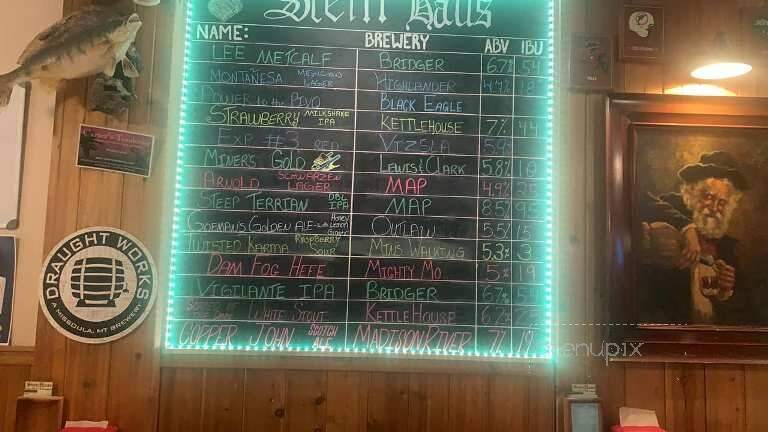 Stein Haus
NAME: BREWERY ABV IBU
LEE METCALF BRIDGER 6.7% 54
MONTAÑESA MEXICAN LAGER HIGHLANDER
POWER to the PIVO BLACK EAGLE
STRAWBERRY MILKSHAKE IPA KETTLEHOUSE 7% 44
EXP #3 RED VIZSLA
MINER'S GOLD LEWIS & CLARK 5.8% 10
ARNOLD SCHWARZEN LAGER MAP 4.9% 25
STEEP TERRIAN DBL IPA MAP 8.5% 95
GOEMAN'S GOLDEN ALE Honey Lemon OUTLAW 5.5% 15
TWISTED KARMA RASPBERRY SOUR MTNS WALKING 5.3% 3
DAM FOG HEFE MIGHTY MO 5% 19
VIGILANTE IPA BRIDGER 6.7%
WHITE STOUT KETTLEHOUSE
COPPER JOHN SCOTCH ALE MADISON RIVER
DRAUGHT WORKS
A MISSOULA, MT BREWERY
menupix